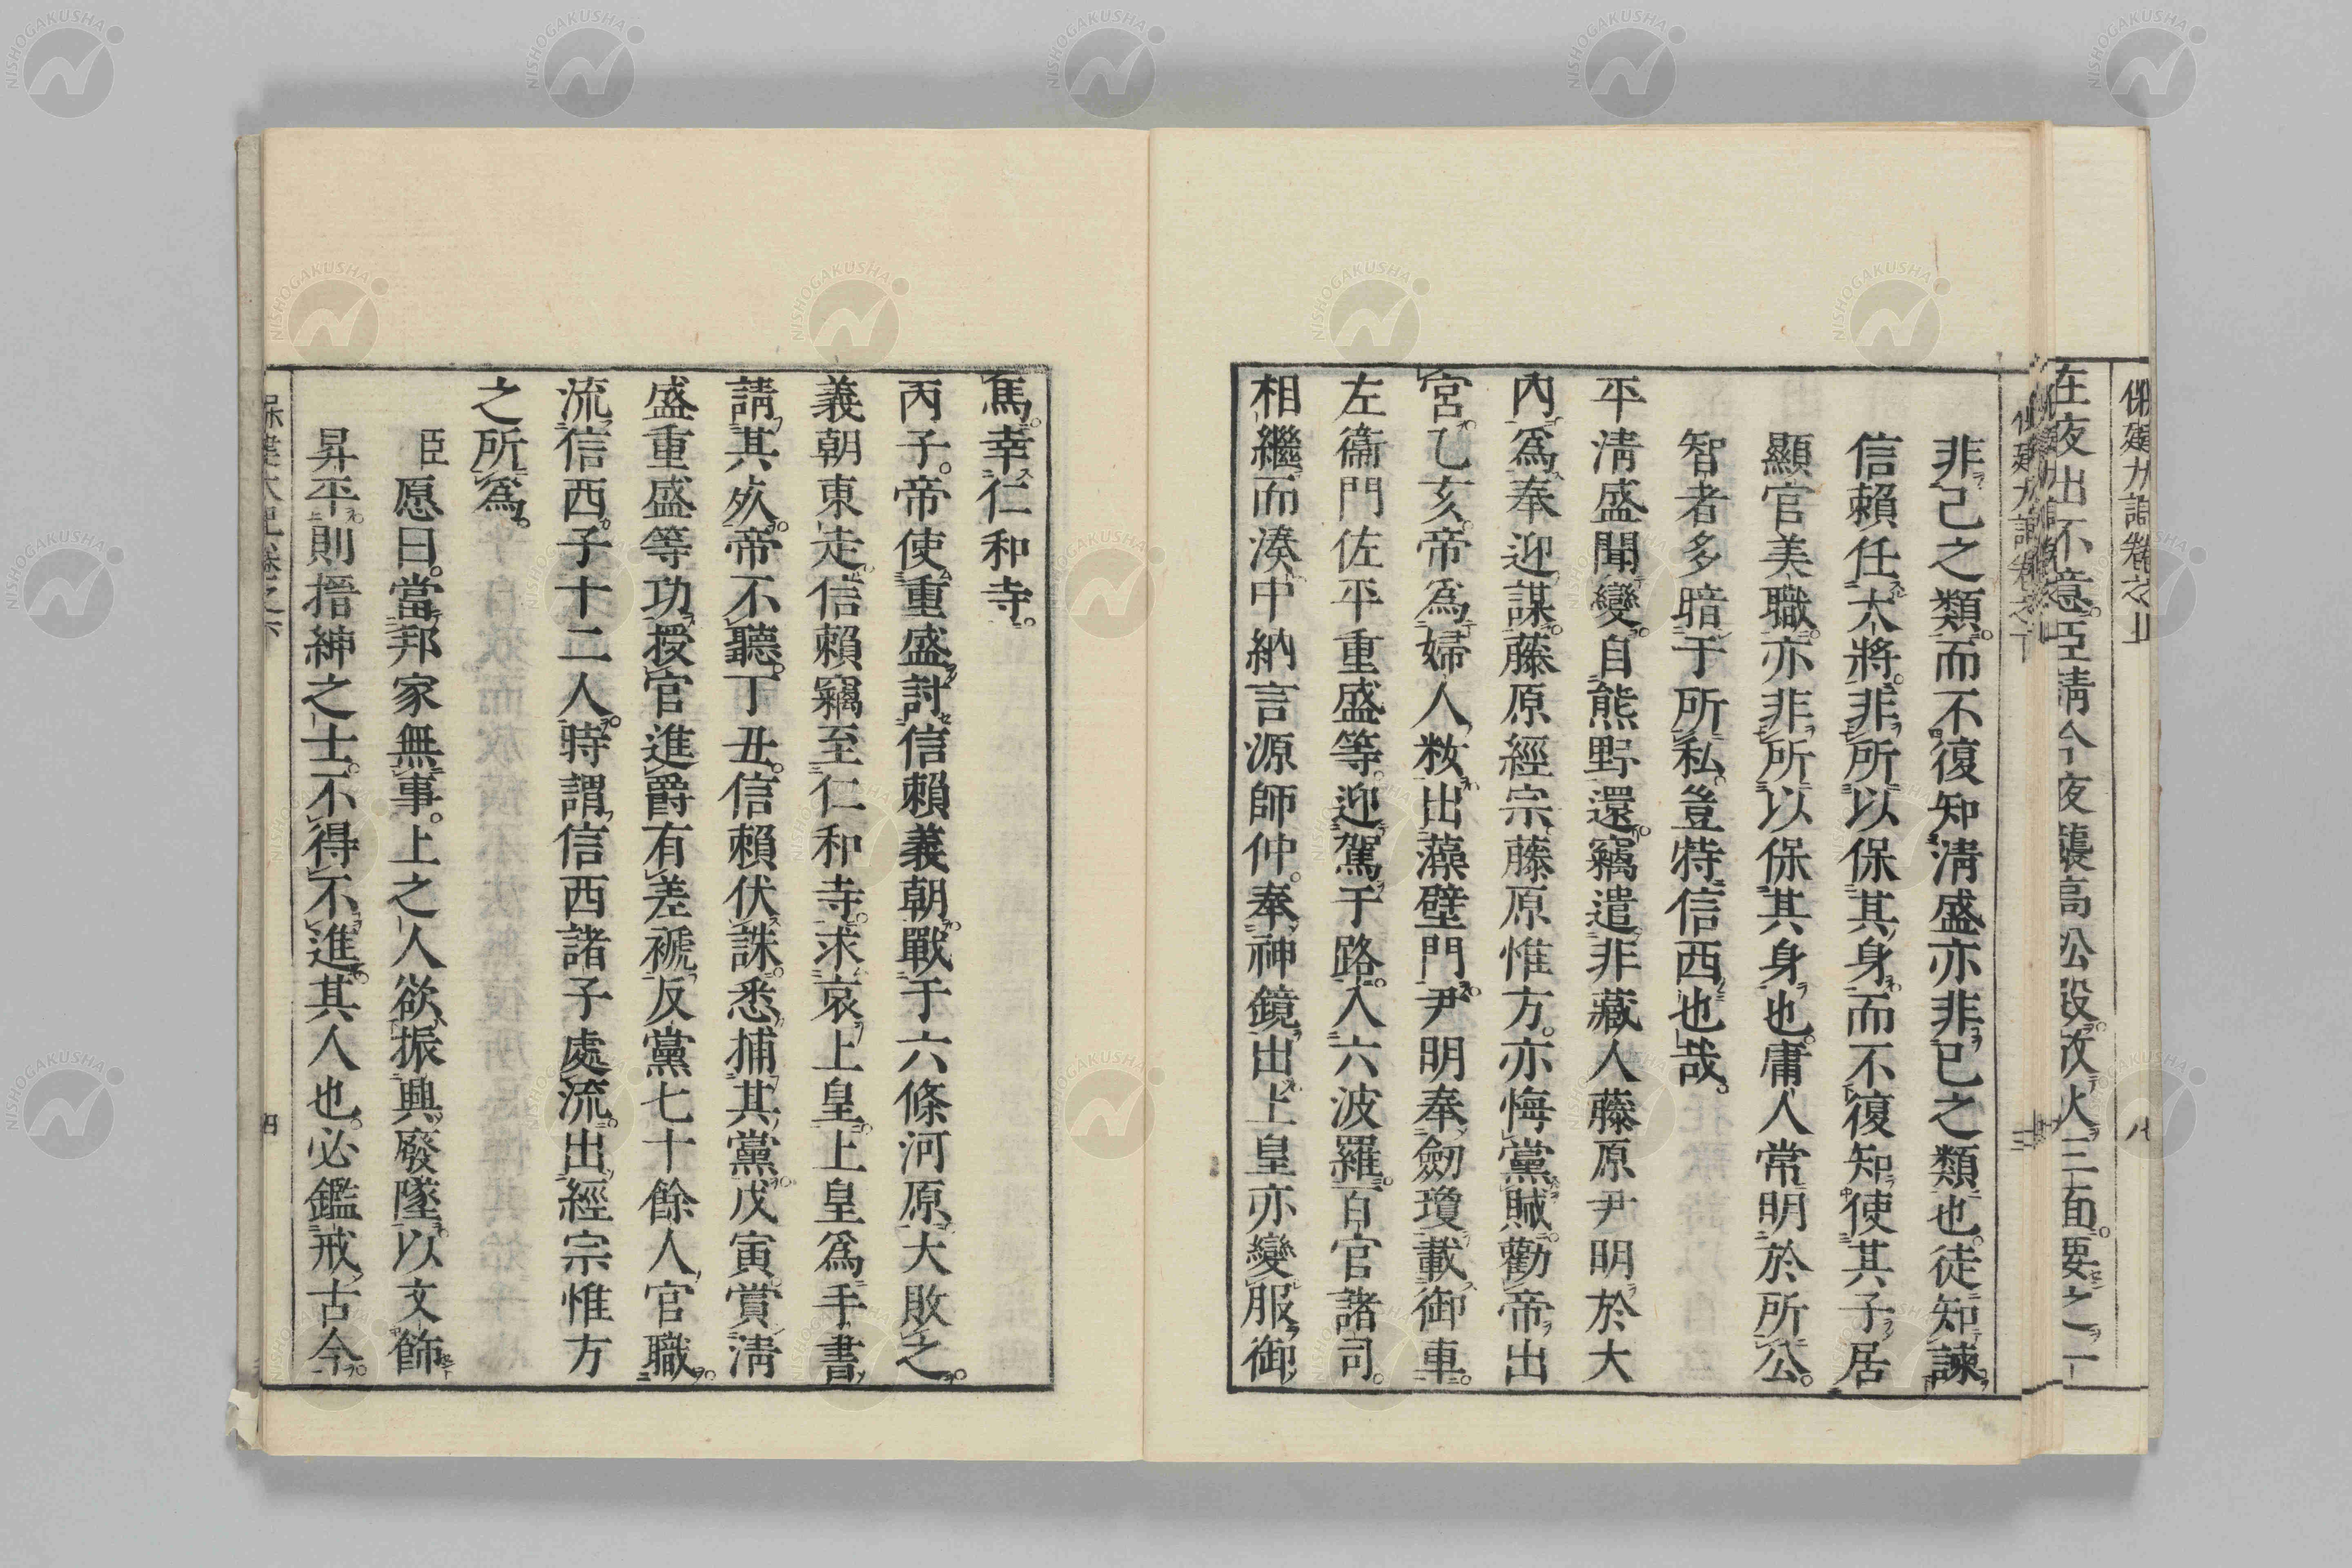 保建大記卷之上
八
在夜出不意臣請今夜襲高松殿放火三面要之一
保建大記卷之下
三
非己之類而不復知清盛亦非已之類也徒知諫
信賴任大將非所以保其身而不復知使其子居
顯官美職亦非所以保其身也庸人常明於所公
智者多暗于所私豈特信西也哉
平清盛聞變自熊野還竊遣非藏人藤原尹明於大
內爲奉迎謀藤原經宗藤原惟方亦悔黨賊勸帝出
宮乙亥帝爲婦人敉出藻壁門尹明奉劒瓊載御車
左衞門佐平重盛等迎駕于路入六波羅百官諸司
相繼而湊中納言源師仲奉神鏡出上皇亦變服御
馬幸仁和寺
丙子帝使重盛討信賴義朝戰于六條河原大敗之
義朝東走信賴竊至仁和寺求哀上皇上皇爲手書
請其㱥帝不聽丁丑信賴伏誅悉捕其黨戊寅賞清
盛重盛等功授官進爵有差褫反黨七十餘人官職
流信西子十二人時謂信西諸子處流出經宗惟方
之所爲
臣愿曰當邦家無事上之人欲振興廢墜以文飾
昇平則搢紳之士不得不進其人也必鑑戒古今
保建大記卷之下
四